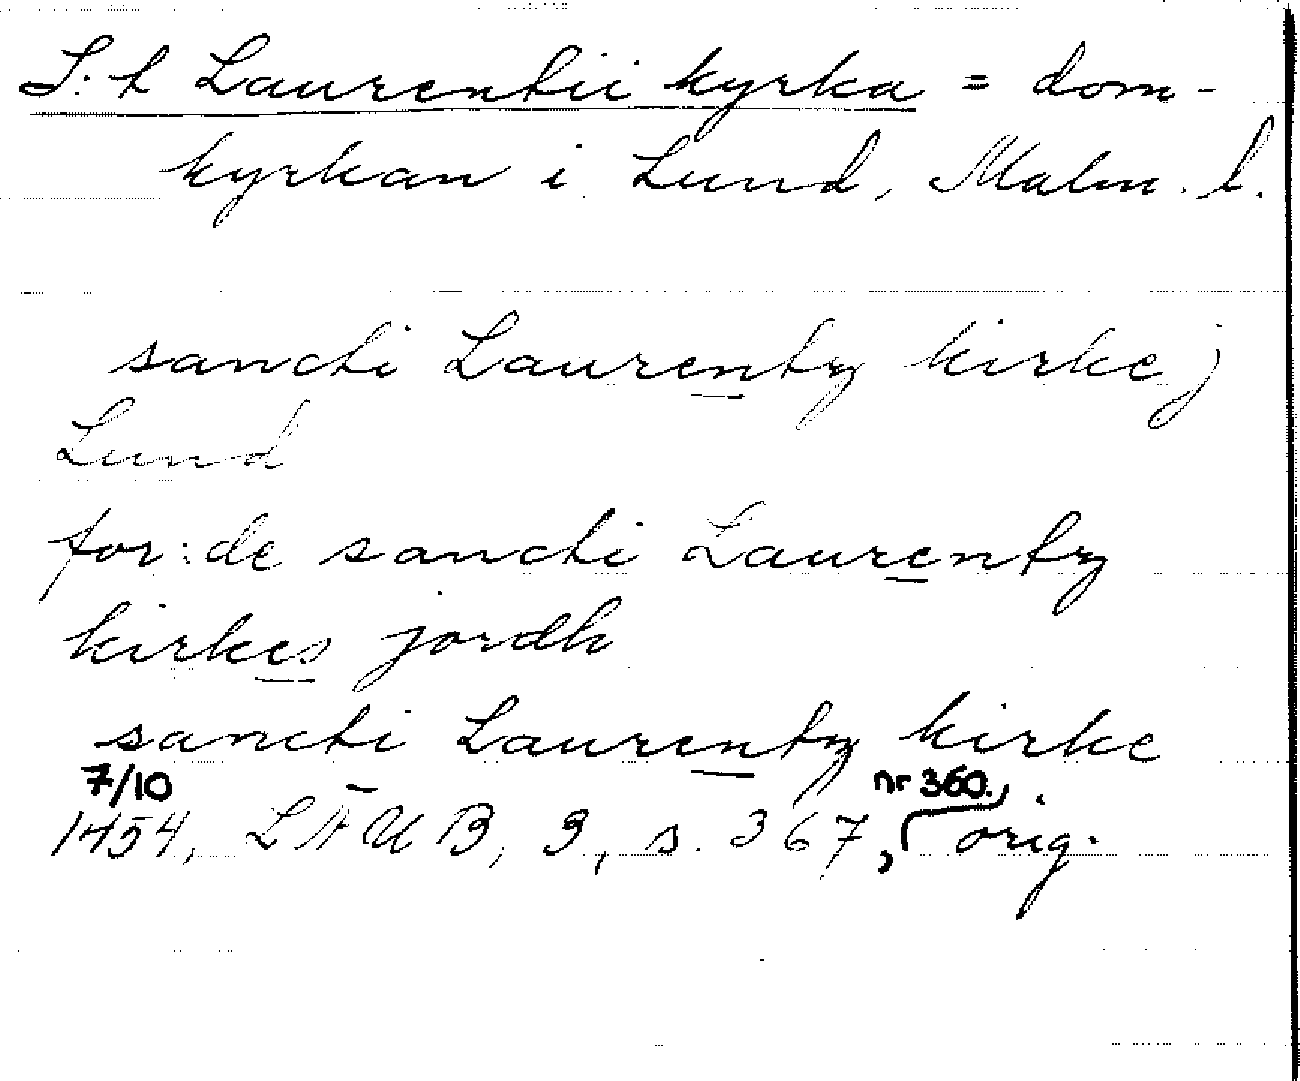 S:t Laurentii kyrka = dom-
kyrkan i Lund, Malm. l.
sancti Laurenty kirke j
Lund
for:de sancti Laurenty
kirkes jordh
sancti Laurenty kirke
7/10 nr 360.,
1454, LÄUB, 3, s. 367, orig.